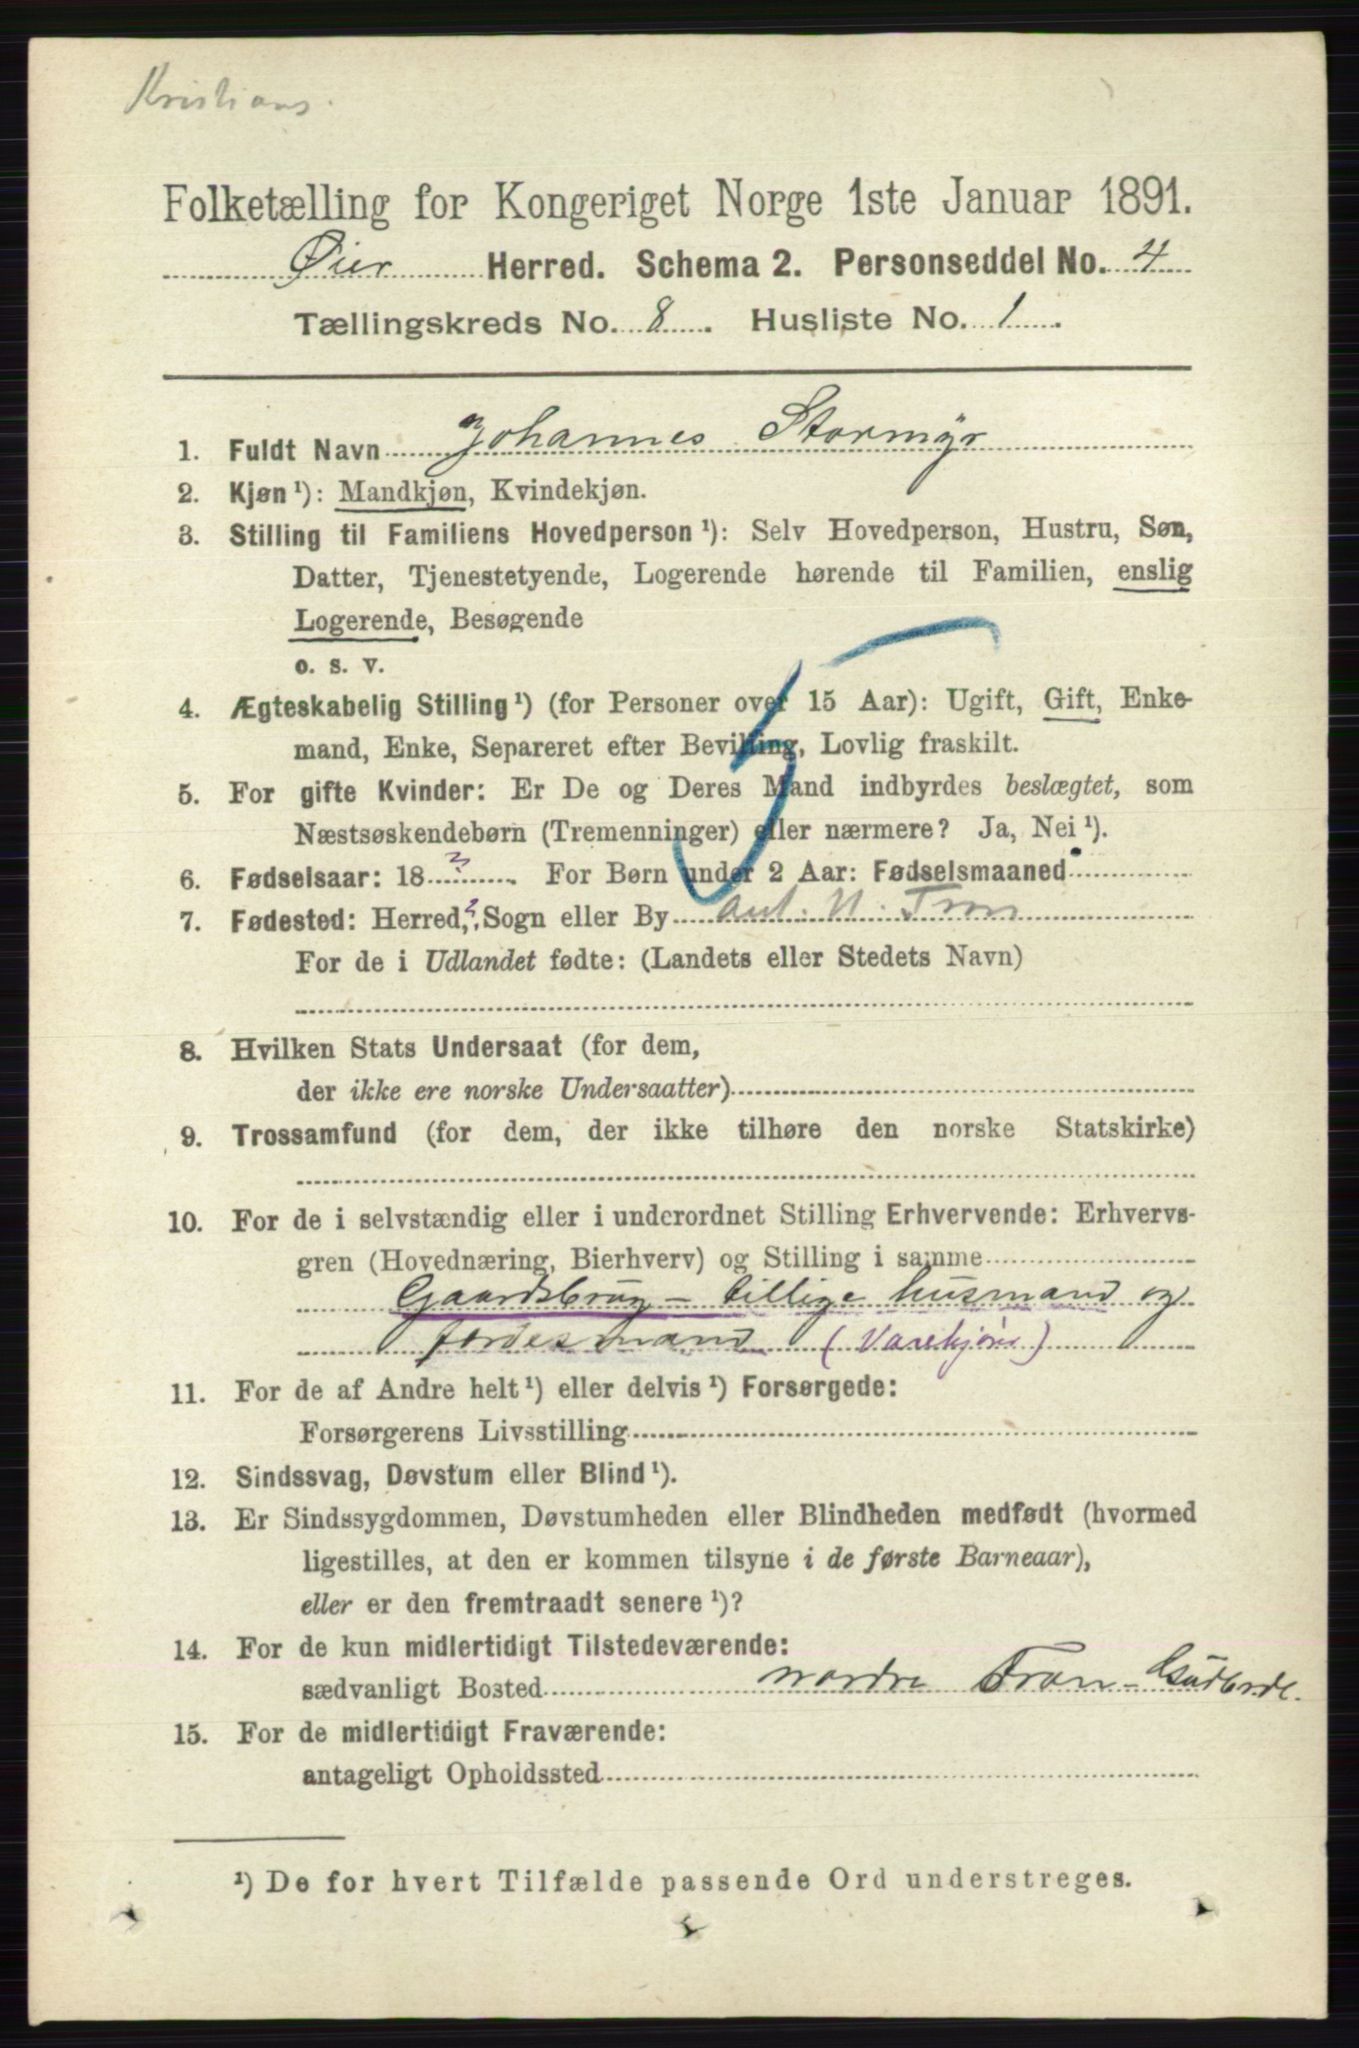 Kristians.
Folketælling for Kongeriget Norge 1ste Januar 1891.
Øier Herred. Schema 2. Personseddel No. 4
Tællingskreds No. 8. Husliste No. 1.
1. Fuldt Navn Johannes Stormyr
2. Kjøn ¹): Mandkjøn, Kvindekjøn.
3. Stilling til Familiens Hovedperson ¹): Selv Hovedperson, Hustru, Søn,
Datter, Tjenestetyende, Logerende hørende til Familien, enslig
Logerende, Besøgende
o. s. v.
4. Ægteskabelig Stilling ¹) (for Personer over 15 Aar): Ugift, Gift, Enke-
mand, Enke, Separeret efter Bevilling, Lovlig fraskilt.
5. For gifte Kvinder: Er De og Deres Mand indbyrdes beslægtet, som
Næstsøskendebørn (Tremenninger) eller nærmere? Ja, Nei ¹).
6. Fødselsaar: 18 ?. For Børn under 2 Aar: Fødselsmaaned
7. Fødested: Herred, ? Sogn eller By ant. N. Fron
For de i Udlandet fødte: (Landets eller Stedets Navn)
8. Hvilken Stats Undersaat (for dem,
der ikke ere norske Undersaatter)
9. Trossamfund (for dem, der ikke tilhøre den norske Statskirke)
10. For de i selvstændig eller i underordnet Stilling Erhvervende: Erhvervs-
gren (Hovednæring, Bierhverv) og Stilling i samme
Gaardsbrug - tillige husmand og
(Varekjører)
11. For de af Andre helt ¹) eller delvis ¹) Forsørgede:
Forsørgerens Livsstilling
12. Sindssvag, Døvstum eller Blind ¹).
13. Er Sindssygdommen, Døvstumheden eller Blindheden medfødt (hvormed
ligestilles, at den er kommen tilsyne i de første Barneaar),
eller er den fremtraadt senere ¹)?
14. For de kun midlertidigt Tilstedeværende:
sædvanligt Bosted nordre Fron - Gudbrdl.
15. For de midlertidigt Fraværende:
antageligt Opholdssted
¹) De for hvert Tilfælde passende Ord understreges.